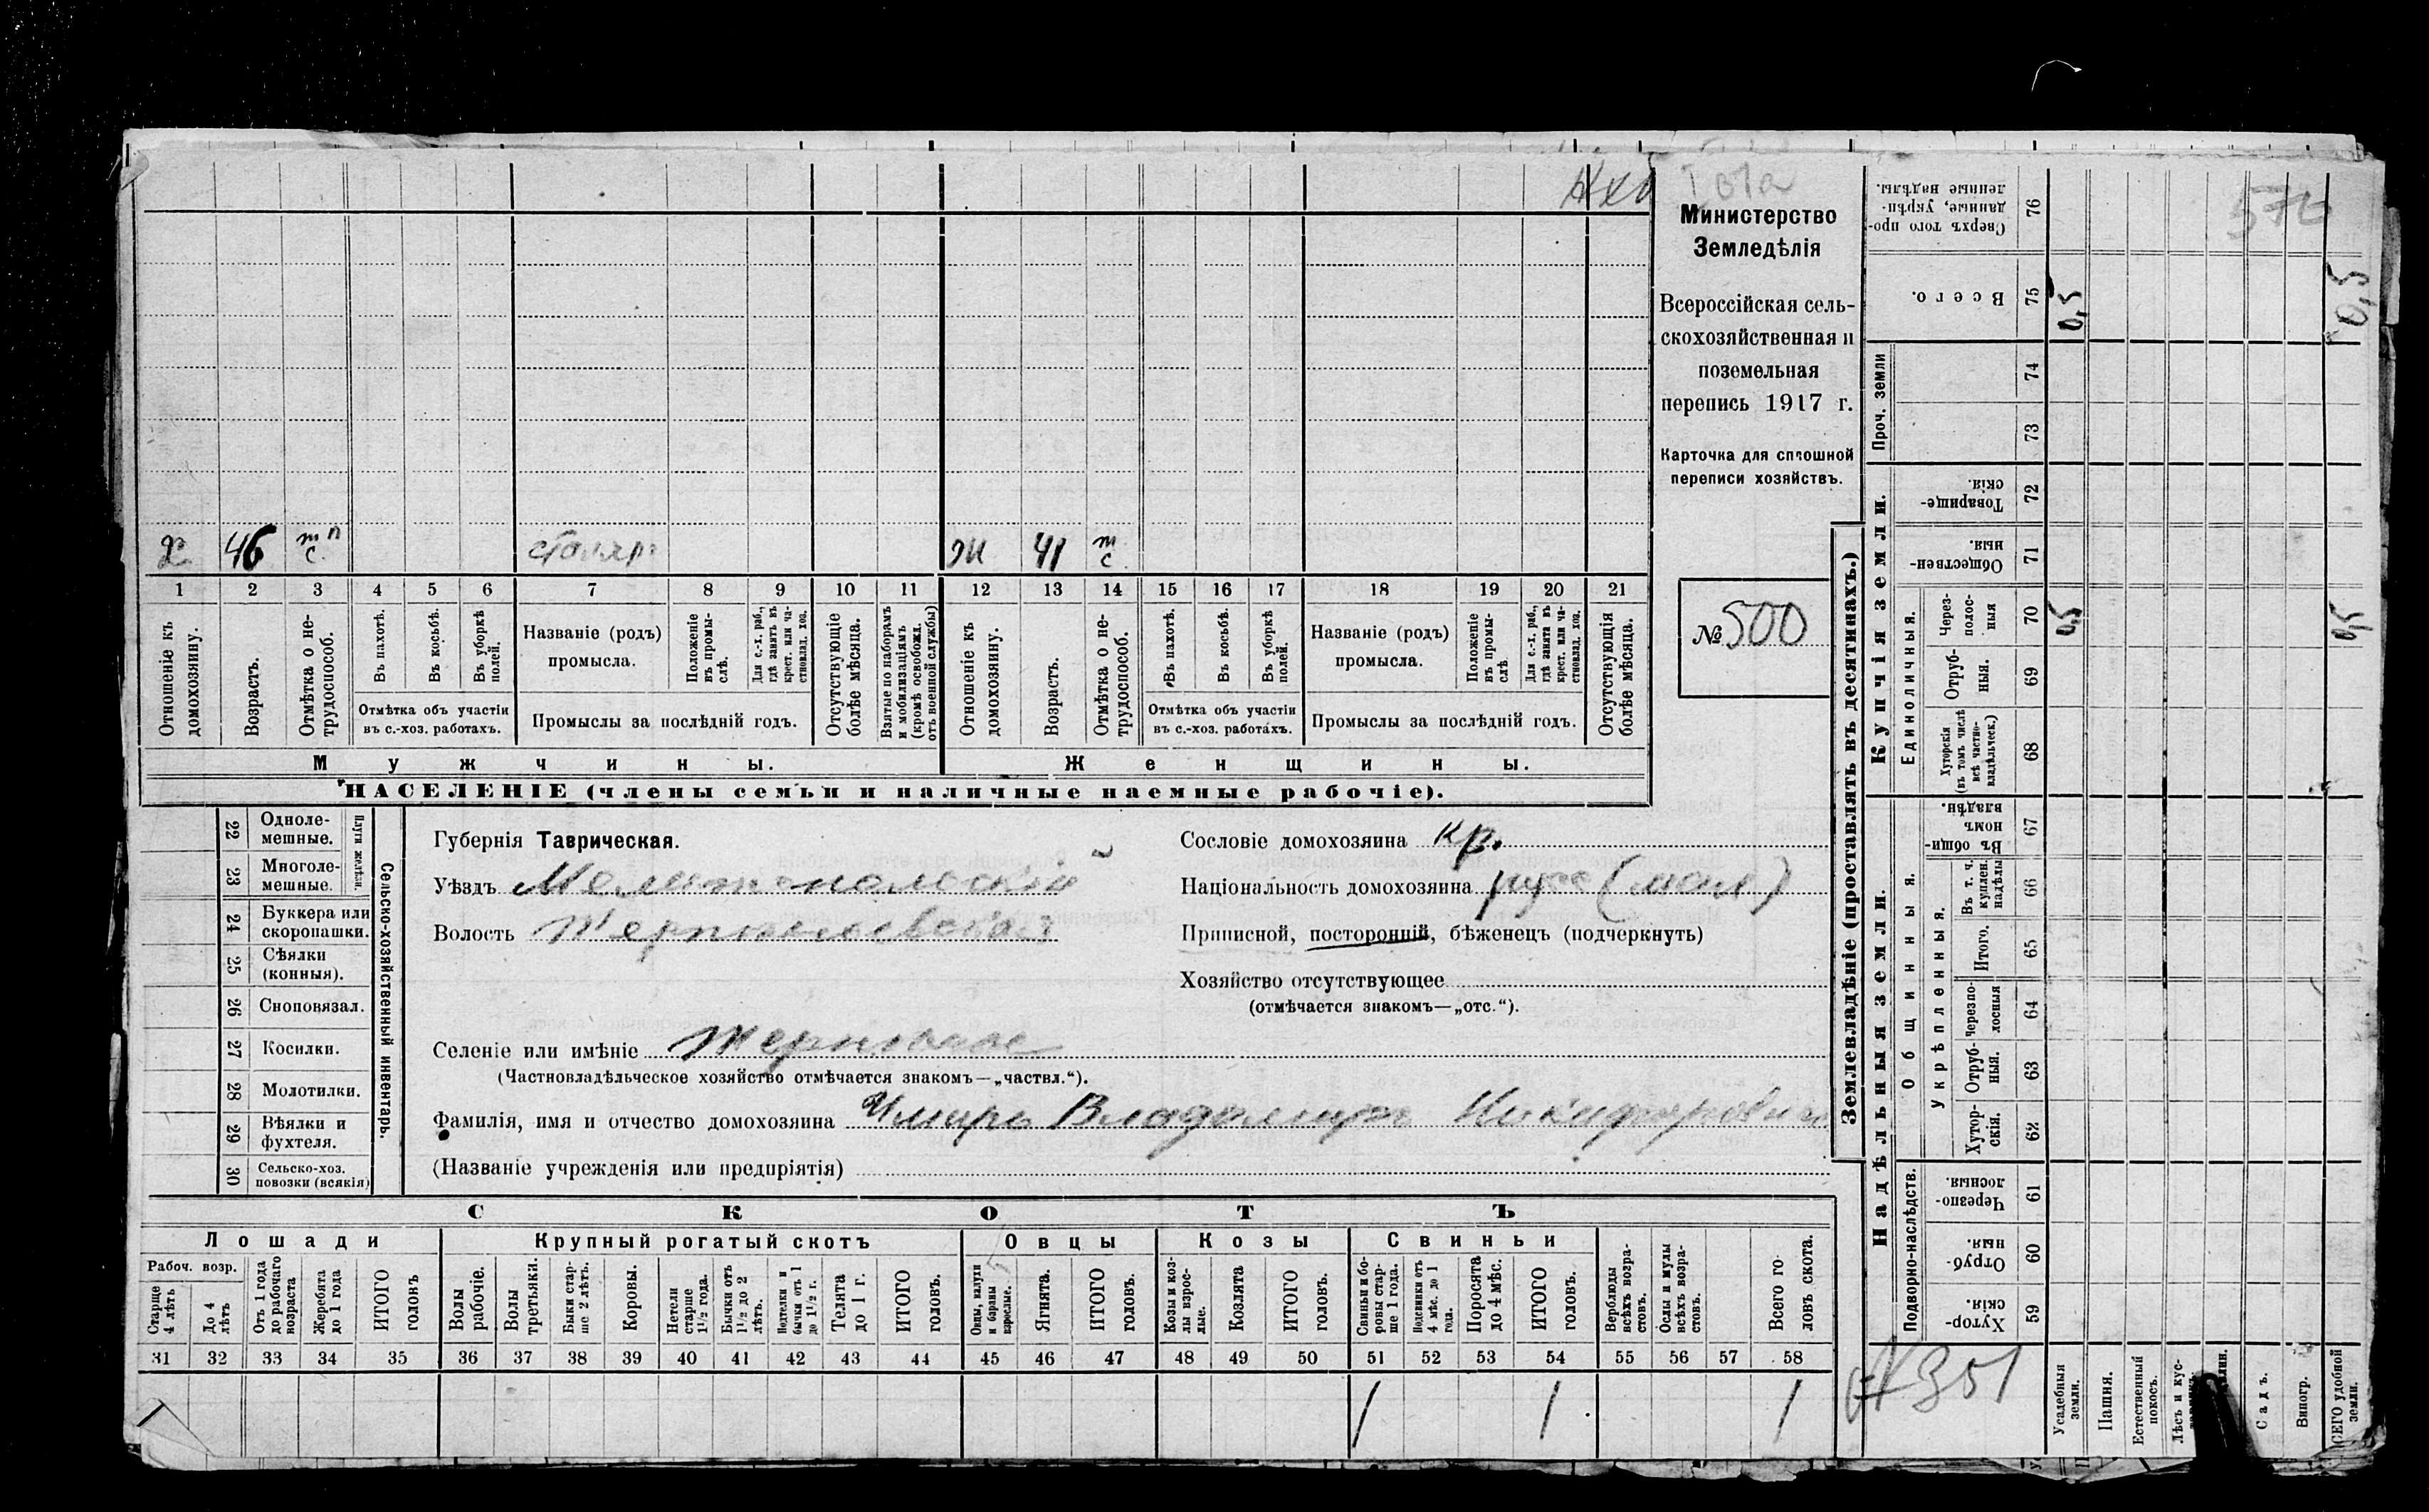 Министерство
Земледѣлія
Всероссійская сель-
скохозяйственная и
поземельная
перепись 1917 г.
Карточка для сплошной
переписи хозяйствъ.
№ 500
х 46 столяръ ж 41
1 2 3 4 5 6 7 8 9 10 11 12 13 14 15 16 17 18 19 20 21
Отношеніе къ домохозяину.
Возрастъ.
Отмѣтка о не-трудоспособ.
Въ пахотѣ.
Въ косьбѣ.
Въ уборкѣ полей.
Отмѣтка объ участіи
въ с.-хоз. работахъ.
Названіе (родъ)
промысла.
Положеніе въ промы-слѣ.
Для с.-х. раб., гдѣ занятъ въ крест. или ча-стновлад. хоз.
Промыслы за послѣдній годъ.
Отсутствующіе болѣе мѣсяца.
Взятые по наборамъ и мобилизаціямъ (кромѣ освобожд. отъ военной службы)
Отношеніе къ домохозяину.
Возрастъ.
Отмѣтка о не-трудоспособ.
Въ пахотѣ.
Въ косьбѣ.
Въ уборкѣ полей.
Отмѣтка объ участіи
въ с.-хоз. работахъ.
Названіе (родъ)
промысла.
Положеніе въ промы-слѣ
Для с.-х. раб., гдѣ занята въ крест. или ча-стновлад. хоз.
Промыслы за послѣдній годъ.
Отсутствующія болѣе мѣсяца.
Мужчины.
Женщины.
НАСЕЛЕНІЕ (члены семьи и наличные наемные рабочіе).
22 Одноле-мешные.
23 Многоле-мешные.
Плуги желѣзн.
24 Буккера или скоропашки.
25 Сѣялки (конныя).
26 Сноповязал.
27 Косилки.
28 Молотилки.
29 Вѣялки и фухтеля.
30 Сельско-хоз. повозки (всякія)
Сельско-хозяйственный инвентарь.
Губернія Таврическая.
Уѣздъ Мелитопольскій
Волость Терпѣніевская
Селеніе или имѣніе Терпѣніе
(Частновладѣльческое хозяйство отмѣчается знакомъ—„частвл.“).
Фамилія, имя и отчество домохозяина Владимиръ Никифоровичъ
(Названіе учрежденія или предпріятія)
Сословіе домохозяина кр.
Національность домохозяина русс
Приписной, посторонній, бѣженецъ (подчеркнуть)
Хозяйство отсутствующее
(отмѣчается знакомъ—„отс.“).
СКОТЪ
Лошади
Рабоч. возр.
Старше 4 лѣтъ
До 4 лѣтъ
Отъ 1 года до рабочаго возраста
Жеребята до 1 года
ИТОГО головъ
Крупный рогатый скотъ
Волы рабочіе.
Волы третьяки.
Быки стар-ше 2 лѣтъ.
Коровы.
Нетели старше 1½ года.
Бычки отъ 1½ до 2 лѣтъ.
Подтелки и бычки отъ 1 до 1½ г.
Телята до 1 г.
ИТОГО головъ.
Овцы
Овцы, валухи и бараны взрослые.
Ягнята.
ИТОГО головъ.
Козы
Козы и коз-лы взрос-лые.
Козлята
ИТОГО головъ.
Свиньи
Свиньи и бо-ровы стар-ше 1 года.
Подсвинки отъ 4 мѣс. до 1 года.
Поросята до 4 мѣс.
ИТОГО головъ.
Верблюды всѣхъ возра-стовъ.
Ослы и мулы всѣхъ возра-стовъ.
Всего го-ловъ скота.
31 32 33 34 35 36 37 38 39 40 41 42 43 44 45 46 47 48 49 50 51 52 53 54 55 56 57 58
1 1 1
Землевладѣніе (проставлять въ десятинахъ.)
Надѣльныя земли.
Купчія земли.
Проч. земли
Подворно-наслѣдств.
Общинныя.
Укрѣпленныя.
Единоличныя.
Хутор-скія. 59
Отруб-ныя. 60
Черезпо-лосныя. 61
Хутор-скія. 62
Отруб-ныя. 63
Черезпо-лосныя 64
Итого. 65
Въ т. ч. куплен. надѣлы 66
Въ общин-номъ владѣн. 67
Хуторскія (въ томъ числѣ всѣ частно-владѣльческ.) 68
Отруб-ныя. 69
Через-полос-ныя 70 0,5 0,5
Обществен-ныя. 71
Товарище-скія. 72
73
74
Всего. 75 0,5 0,5
Сверхъ того про-данные, укрѣп-ленные надѣлы. 76
Усадебныя земли.
Пашня.
Естественный покосъ.
Лѣсъ и кус-
Садъ.
Виногр.
ВСЕГО удобной земли.
351